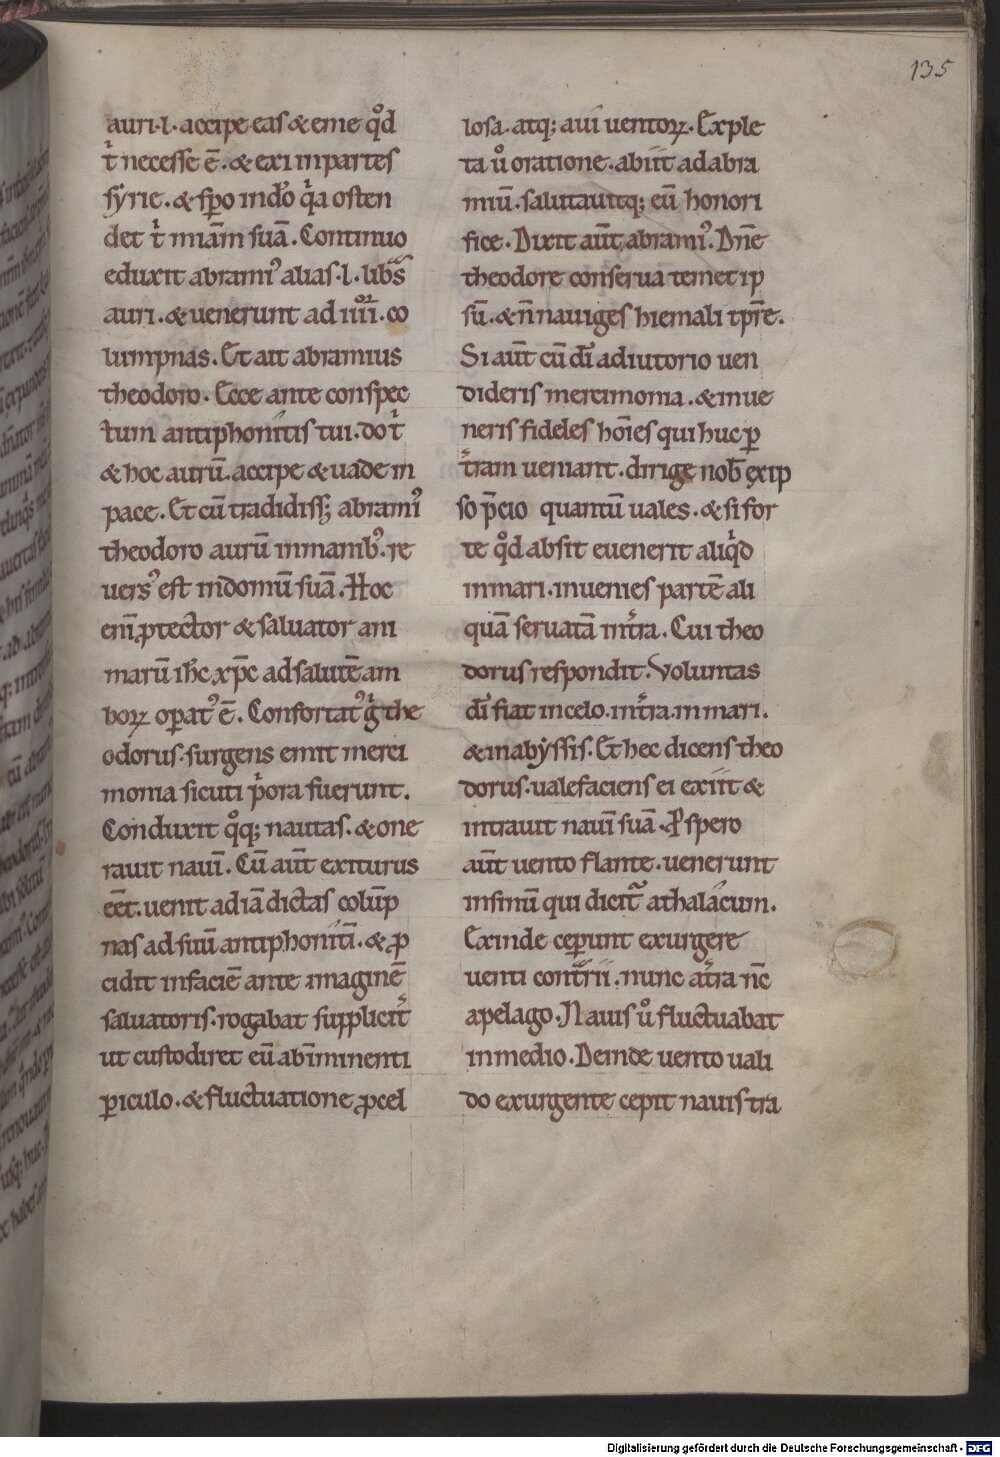 135
auri·l· accipe eas & eme qͦd
t̾ necesse ē. & exi in partes
syrie. & sp̄o in dn̄o q̾a osten
det t̾ mīam suā. Continuo
eduxit abrami᾿ alias ·l· lib̄s
auri. & uenerunt ad iiii. co
lumpnas. Et ait abramius
theodoro. Ecce ante conspec
tum antiphonitis tui. do t̾
& hoc aurū. accipe & uade in
pace. Et cū tradidiss; abrami᾿
theodoro aurū in manib᾿. re
uers᾿ est in domū suā. Hoc
enī ꝓtector & saluator ani
marū ih̄c xp̄c ad salutē am
boꝝ opat᾿ ē. Confortat᾿ g̾ the
odorus· surgens emit merci
monia sicuti p̾ora fuerunt.
Conduxit qͦq; nautas. & one
rauit nauī. Cū aūt exiturus
eēt. uenit ad iā dictas colūp
nas ad suū antiphonitī. & ꝓ
cidit in faciē ante imaginē
saluatoris. rogabat supplicit̾
ut custodiret eū ab īminenti
ꝑiculo. & fluctuatione ꝓcel
losa. atq; aui uentoꝝ. Exple
ta uͦ oratione. abiit ad abra
miū. salutauitq; eū honori
fice. Dixit aūt abrami᾿. Dn̄e
theodore conserua temet ip
sū. & n̄ nauiges hiemali tp̄re.
Si aūt cū dī adiutorio uen
dideris mercimonia. & inue
neris fideles hōies qui huc ꝑ
t̾ram ueniant. dirige nob̄ ex ip
so p̄cio quantū uales. & si for
te qͦd absit euenerit aliq̾d
in mari. inuenies partē ali
quā seruatā in t̾ra. Cui theo
dorus respondit. Voluntas
dī fiat in celo. in t̾ra. in mari.
& in abyssis. Et hec dicens theo
dorus. ualefaciens ei exiit &
intrauit nauī suā. Ꝓspero
aūt uento flante. uenerunt
in sinū qui dicit᾿ athalacum.
Exinde ceperunt exurgere
uenti cont̾rii. nunc a t̾ra nc̄
a pelago. Nauis uͦ fluctuabat
in medio. Deinde uento uali
do exurgente cepit nauis tra
Digitalisierung gefördert durch die Deutsche Forschungsgemeinschaft - DFG